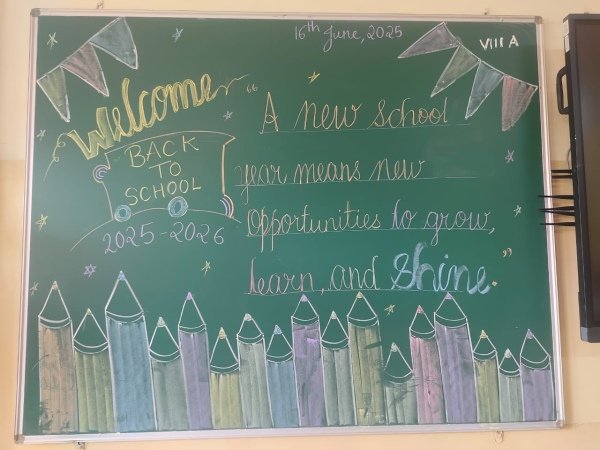 16th June, 2025
VIII A
Welcome
BACK
TO
SCHOOL
2025-2026
"A new school
year means new
Opportunities to grow,
learn, and Shine."